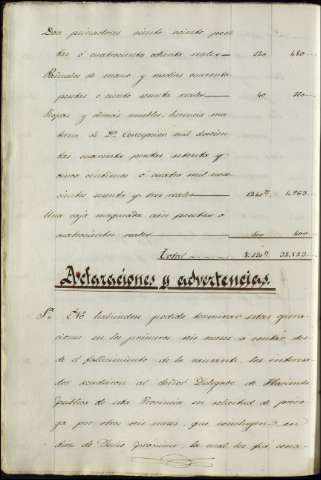 Dos pulseras ciento veinte pese
tas ó cuatrocientos ochenta reales 120 480
Pañuelos de mano y medias cuarenta
pesetas ó ciento sesenta reales 40 160
Ropas y demás muebles, herencia ma
terna de Dª Concepcion mil doscien
tas cuarenta pesetas setenta y
cinco céntimos ó cuatro mil nove
cientos sesenta y tres reales 1240 4,963
Una caja cien pesetas ó
cuatrocientos reales 100 400
Total
Aclaraciones y advertencias.
1ª No habiendo podido terminar estas opera
ciones en los primeros seis meses á contar des
de el fallecimiento de la causante, los interesa
dos acudieron al Señor Delegado de Hacienda
pública de esta Provincia en solicitud de prorro
ga por otros seis meses, que concluyen en
diez de Junio próximo la cual les fué conce